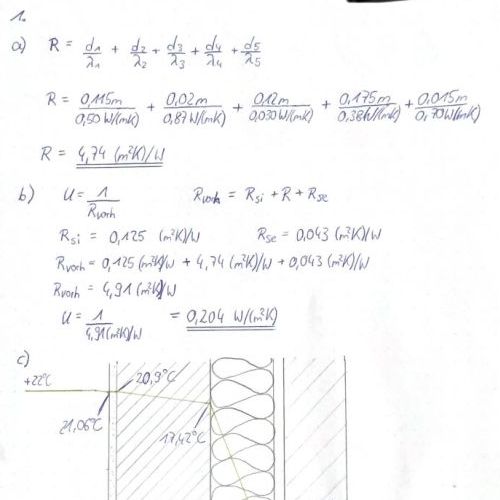 1.
a) R = d1/λ1 + d2/λ2 + d3/λ3 + d4/λ4 + d5/λ5
R = 0,115m/0,50 W/(mK) + 0,02m/0,87 W/(mK) + 0,12m/0,030 W/(mK) + 0,175m/0,38 W/(mK) + 0,015m/0,70 W/(mK)
R = 4,74 (m²K)/W
b) U = 1/Rvorh Rvorh = Rsi + R + Rse
Rsi = 0,125 (m²K)/W Rse = 0,043 (m²K)/W
Rvorh = 0,125 (m²K)/W + 4,74 (m²K)/W + 0,043 (m²K)/W
Rvorh = 4,91 (m²K)/W
U = 1/4,91 (m²K)/W = 0,204 W/(m²K)
c)
+22°C
20,9°C
21,06°C
17,42°C